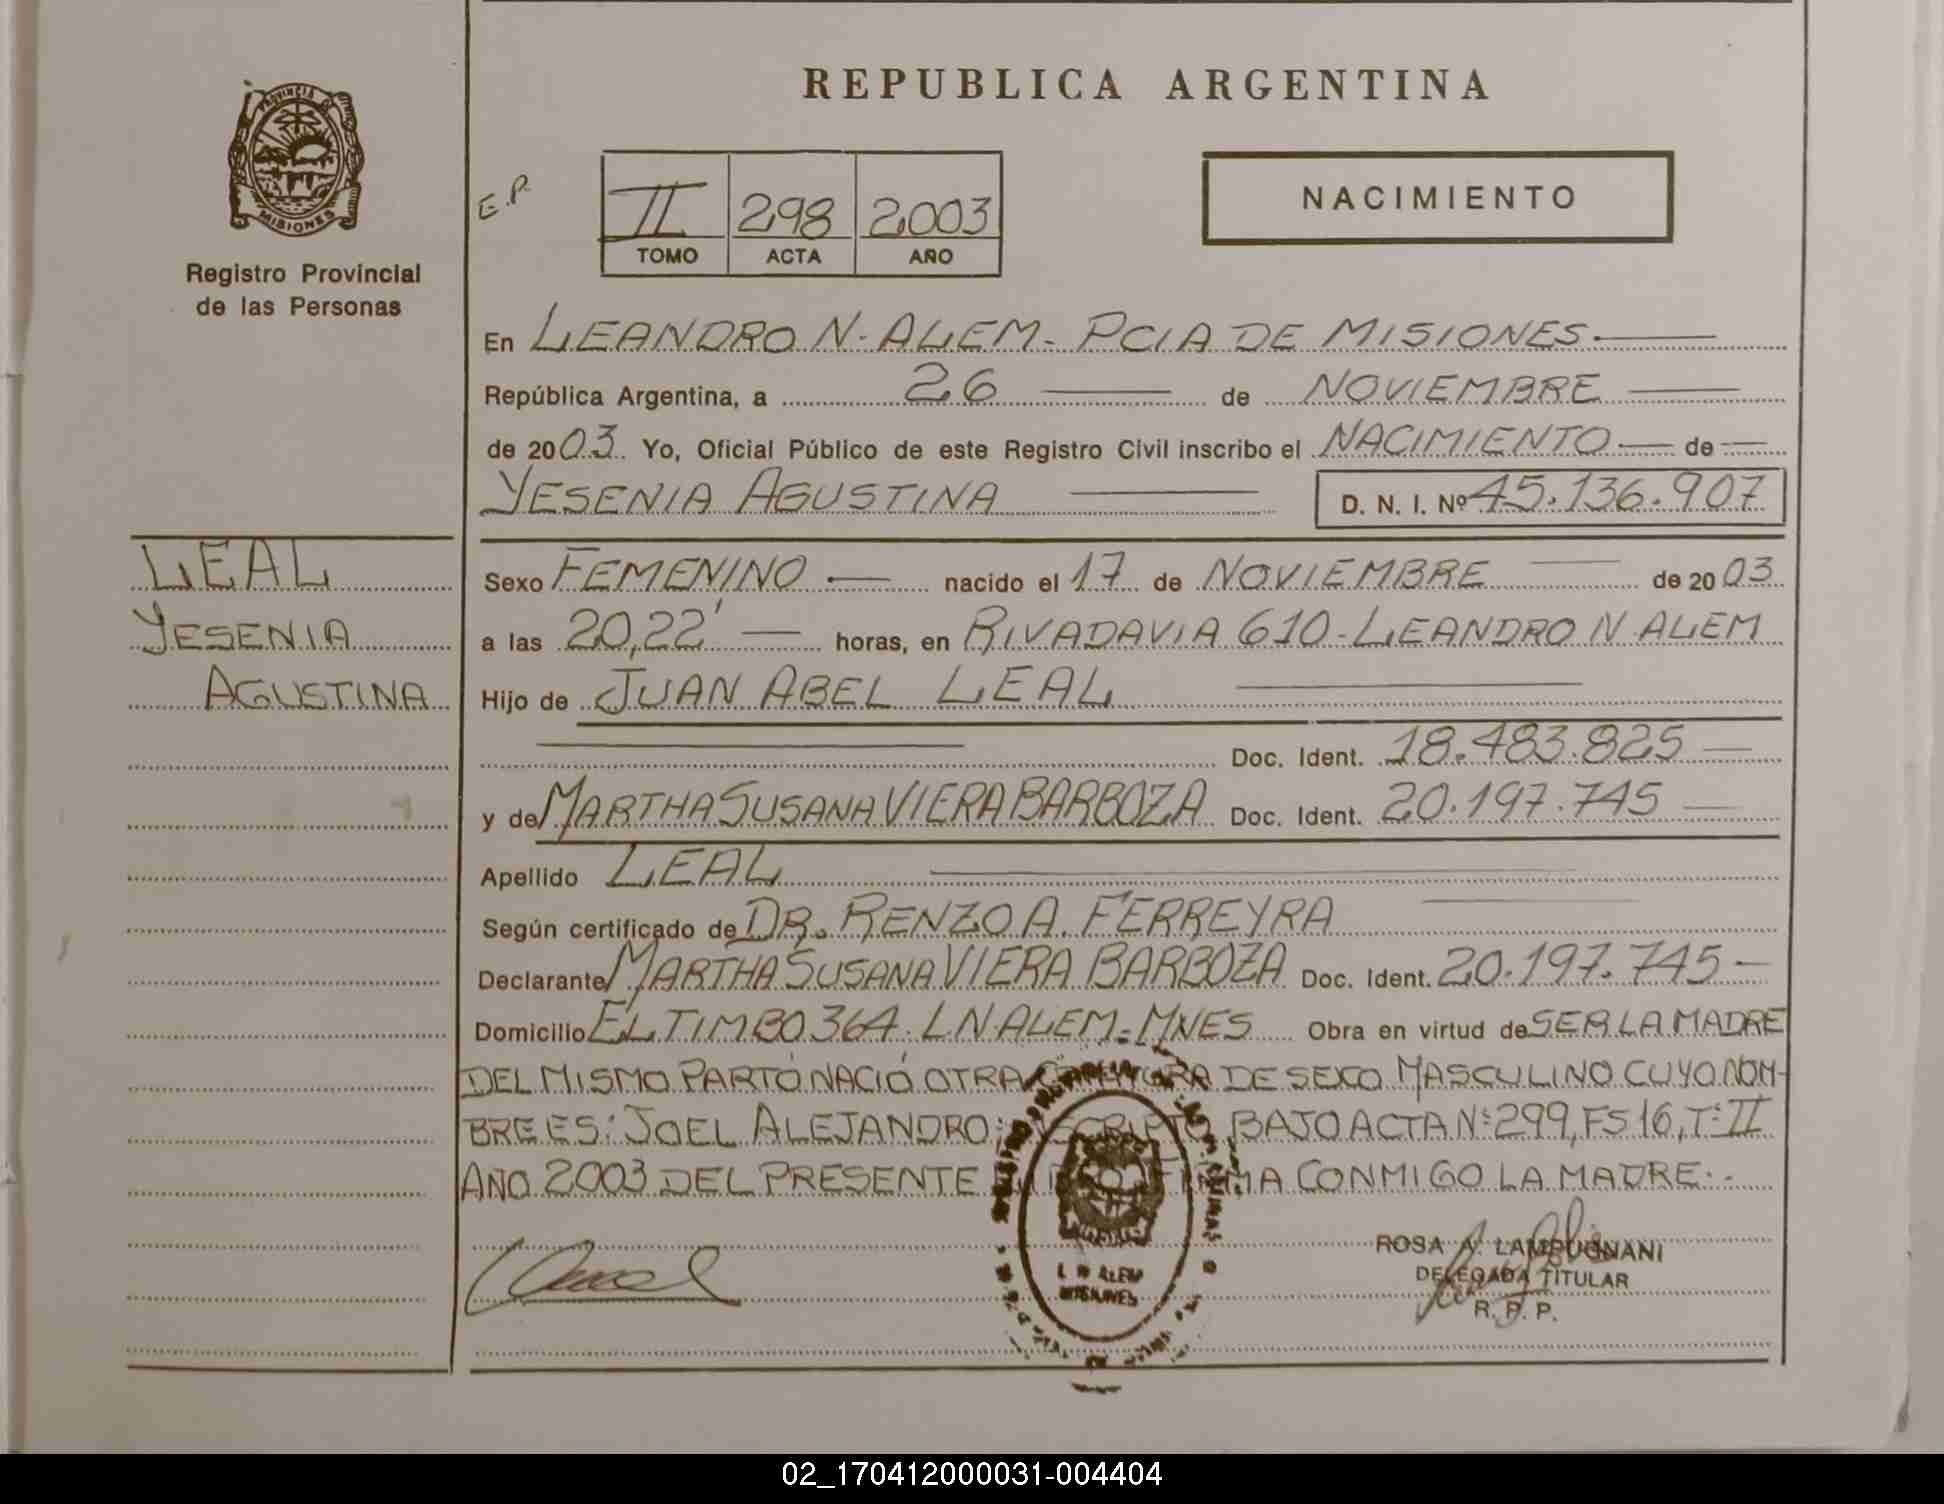 REPUBLICA ARGENTINA
PROVINCIA DE
MISIONES
Registro Provincial
de las Personas
E.P.
II 298 2003
TOMO ACTA AÑO
NACIMIENTO
En LEANDRO N. ALEM - PCIA DE MISIONES.
República Argentina, a 26 de NOVIEMBRE
de 2003 Yo, Oficial Público de este Registro Civil inscribo el NACIMIENTO de
YESENIA AGUSTINA D. N. I. Nº 45.136.907
LEAL
YESENIA
AGUSTINA
Sexo FEMENINO nacido el 17 de NOVIEMBRE de 2003
a las 20,22' horas, en RIVADAVIA 610 - LEANDRO N ALEM
Hijo de JUAN ABEL LEAL
Doc. Ident. 18.483.825
y de MARTHA SUSANA VIERA BARBOZA Doc. Ident. 20.197.745
Apellido LEAL
Según certificado de DR. RENZO A. FERREYRA
Declarante MARTHA SUSANA VIERA BARBOZA Doc. Ident. 20.197.745
Domicilio EL TIMBO 364. L N ALEM - MNES Obra en virtud de SER LA MADRE
DEL MISMO PARTO NACIÓ OTRA DE SEXO MASCULINO CUYO NOM-
BRE ES: JOEL ALEJANDRO; BAJO ACTA Nº 299, FS 16, Tº II
AÑO 2003 DEL PRESENTE FIRMA CONMIGO LA MADRE.-
L N ALEM
MISIONES
ROSA A. LAMPUGNANI
DELEGADA TITULAR
R. P. P.
02_170412000031-004404